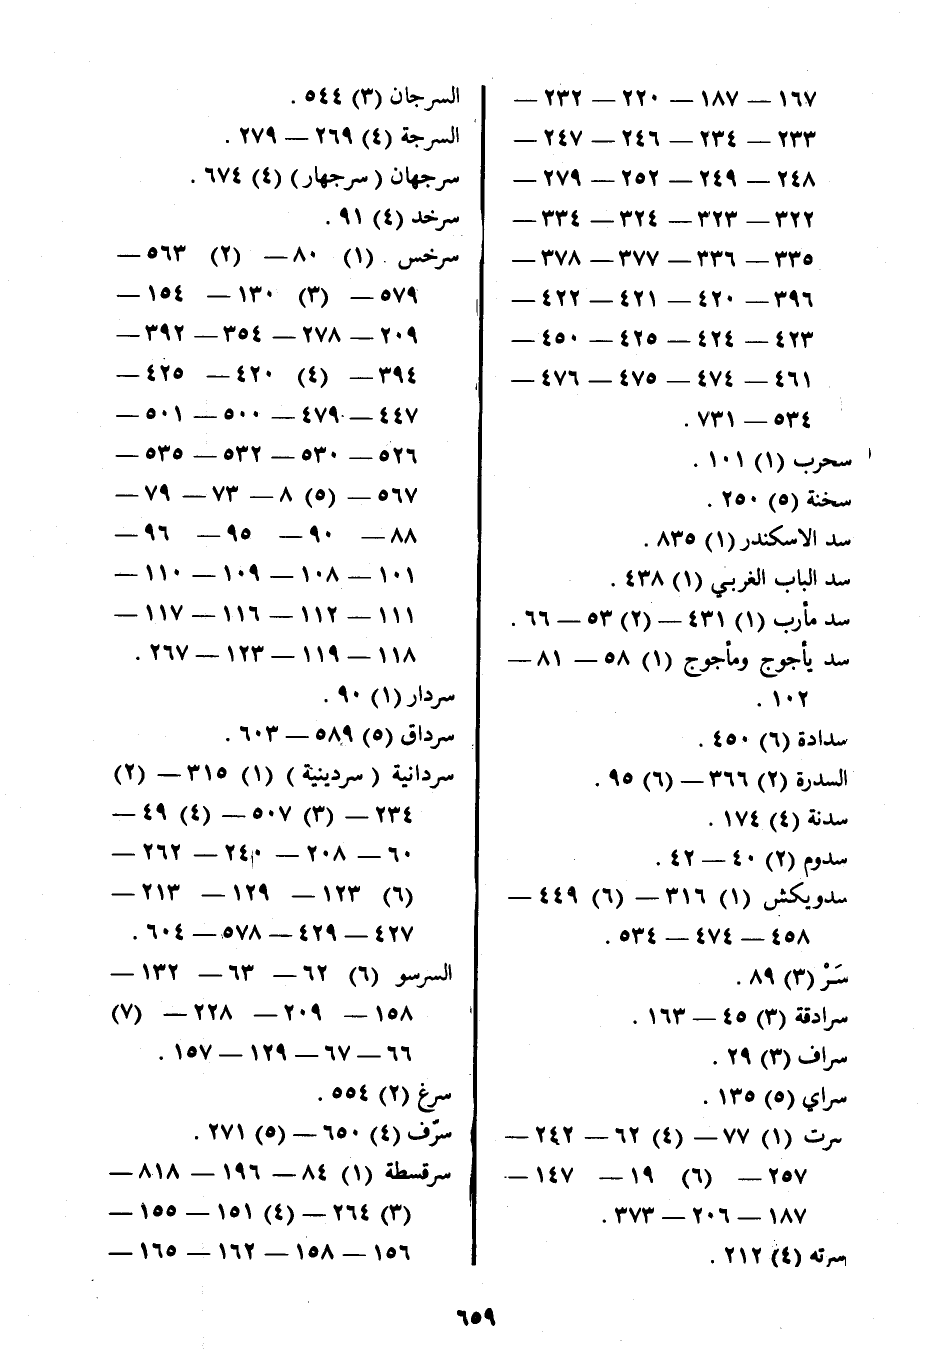 ١٦٧ — ١٨٧ — ٢٢٠ — ٢٣٢ —
٢٣٣ — ٢٣٤ — ٢٤٦ — ٢٤٧ —
٢٤٨ — ٢٤٩ — ٢٥٢ — ٢٧٩ —
٣٢٢ — ٣٢٣ — ٣٢٤ — ٣٣٤ —
٣٣٥ — ٣٣٦ — ٣٧٧ — ٣٧٨ —
٣٩٦ — ٤٢٠ — ٤٢١ — ٤٢٢ —
٤٢٣ — ٤٢٤ — ٤٢٥ — ٤٥٠ —
٤٦١ — ٤٧٤ — ٤٧٥ — ٤٧٦ —
٥٣٤ — ٧٣١ .
سحرب (١) ١٠١ .
سخنة (٥) ٢٥٠ .
سد الاسكندر (١) ٨٣٥ .
سد الباب الغربي (١) ٤٣٨ .
سد مأرب (١) ٤٣١ — (٢) ٥٣ — ٦٦ .
سد يأجوج ومأجوج (١) ٥٨ — ٨١ —
١٠٢ .
سدادة (٦) ٤٥٠ .
السدرة (٢) ٣٦٦ — (٦) ٩٥ .
سدنة (٤) ١٧٤ .
سدوم (٢) ٤٠ — ٤٢ .
سدويكش (١) ٣١٦ — (٦) ٤٤٩ —
٤٥٨ — ٤٧٤ — ٥٣٤ .
سَرْ (٣) ٨٩ .
سرادقة (٣) ٤٥ — ١٦٣ .
سراف (٣) ٢٩ .
سراي (٥) ١٣٥ .
سرت (١) ٧٧ — (٤) ٦٢ — ٢٤٢ —
٢٥٧ — (٦) ١٩ — ١٤٧ —
١٨٧ — ٢٠٦ — ٣٧٣ .
سرته (٤) ٢١٢ .
السرجان (٣) ٥٤٤ .
السرجة (٤) ٢٦٩ — ٢٧٩ .
سرجهان (سرجهار) (٤) ٦٧٤ .
سرخد (٤) ٩١ .
سرخس (١) ٨٠ — (٢) ٥٦٣ —
٥٧٩ — (٣) ١٣٠ — ١٥٤ —
٢٠٩ — ٢٧٨ — ٣٥٤ — ٣٩٢ —
٣٩٤ — (٤) ٤٢٠ — ٤٢٥ —
٤٤٧ — ٤٧٩ — ٥٠٠ — ٥٠١ —
٥٢٦ — ٥٣٠ — ٥٣٢ — ٥٣٥ —
٥٦٧ — (٥) ٨ — ٧٣ — ٧٩ —
٨٨ — ٩٠ — ٩٥ — ٩٦ —
١٠١ — ١٠٨ — ١٠٩ — ١١٠ —
١١١ — ١١٢ — ١١٦ — ١١٧ —
١١٨ — ١١٩ — ١٢٣ — ٢٦٧ .
سردار (١) ٩٠ .
سرداق (٥) ٥٨٩ — ٦٠٣ .
سردانية (سردينية) (١) ٣١٥ — (٢)
٢٣٤ — (٣) ٥٠٧ — (٤) ٤٩ —
٦٠ — ٢٠٨ — ٢٤٠ — ٢٦٢ —
(٦) ١٢٣ — ١٢٩ — ٢١٣ —
٤٢٧ — ٤٢٩ — ٥٧٨ — ٦٠٤ .
السرسو (٦) ٦٢ — ٦٣ — ١٣٢ —
١٥٨ — ٢٠٩ — ٢٢٨ — (٧)
٦٦ — ٦٧ — ١٢٩ — ١٥٧ .
سرغ (٢) ٥٥٤ .
سرّف (٤) ٦٥٠ — (٥) ٢٧١ .
سرقسطة (١) ٨٤ — ١٩٦ — ٨١٨ —
(٣) ٢٦٤ — (٤) ١٥١ — ١٥٥ —
١٥٦ — ١٥٨ — ١٦٢ — ١٦٥ —
٦٥٩